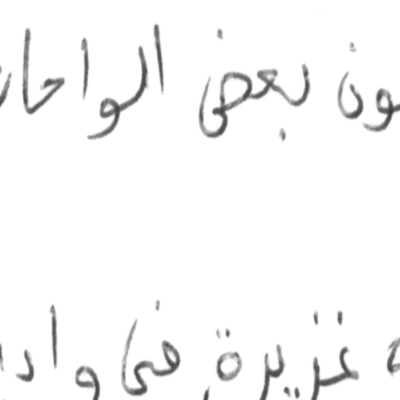 ون بعض الواحا
غزيرة في واد